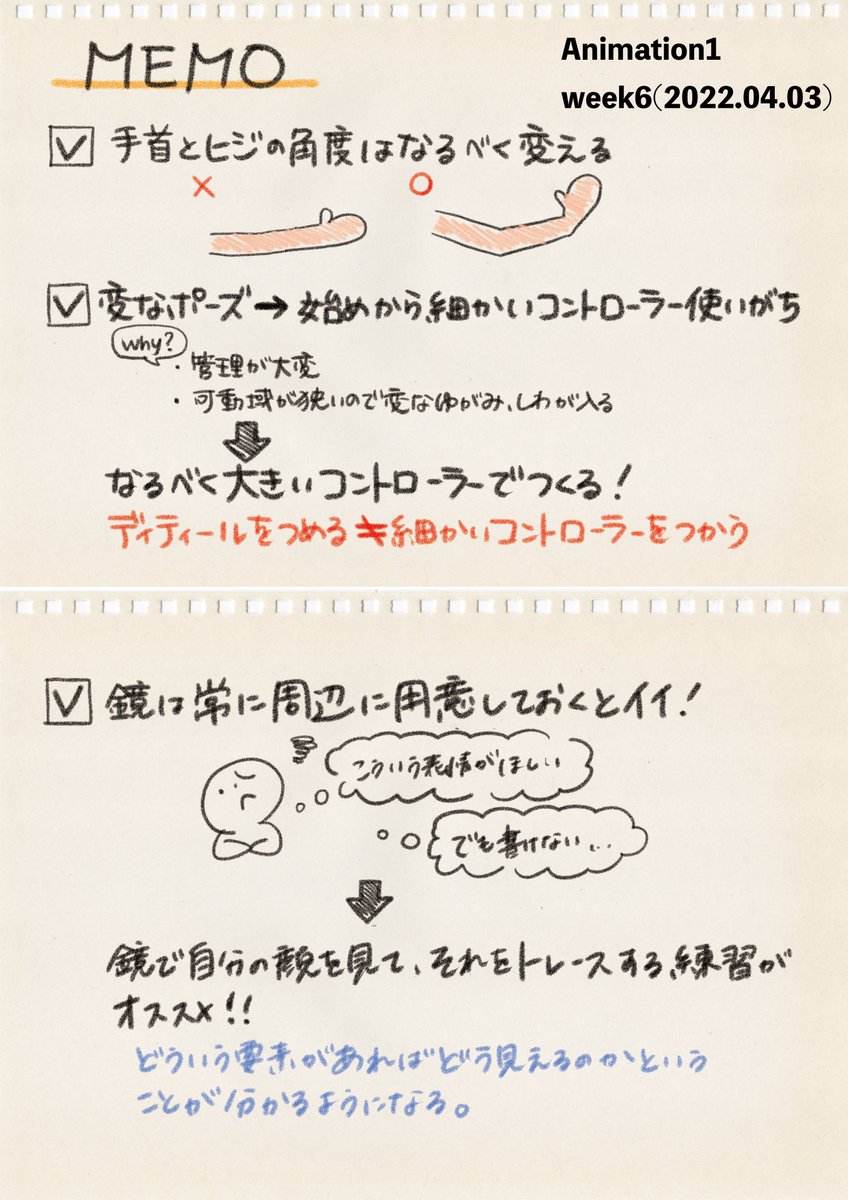 MEMO
Animation1
week6(2022.04.03)
手首とヒジの角度はなるべく変える
×
○
変なポーズ→始めから細かいコントローラー使いがち
why?
・管理が大変
・可動域が狭いので変なゆがみ、しわが入る
なるべく大きいコントローラーでつくる!
ディティールをつめる≠細かいコントローラーをつかう
鏡は常に周辺に用意しておくとイイ!
こういう表情がほしい
でも書けない...
鏡で自分の顔を見て、それをトレースする練習が
オススメ!!
どういう要素があればどう見えるのかという
ことが分かるようになる。